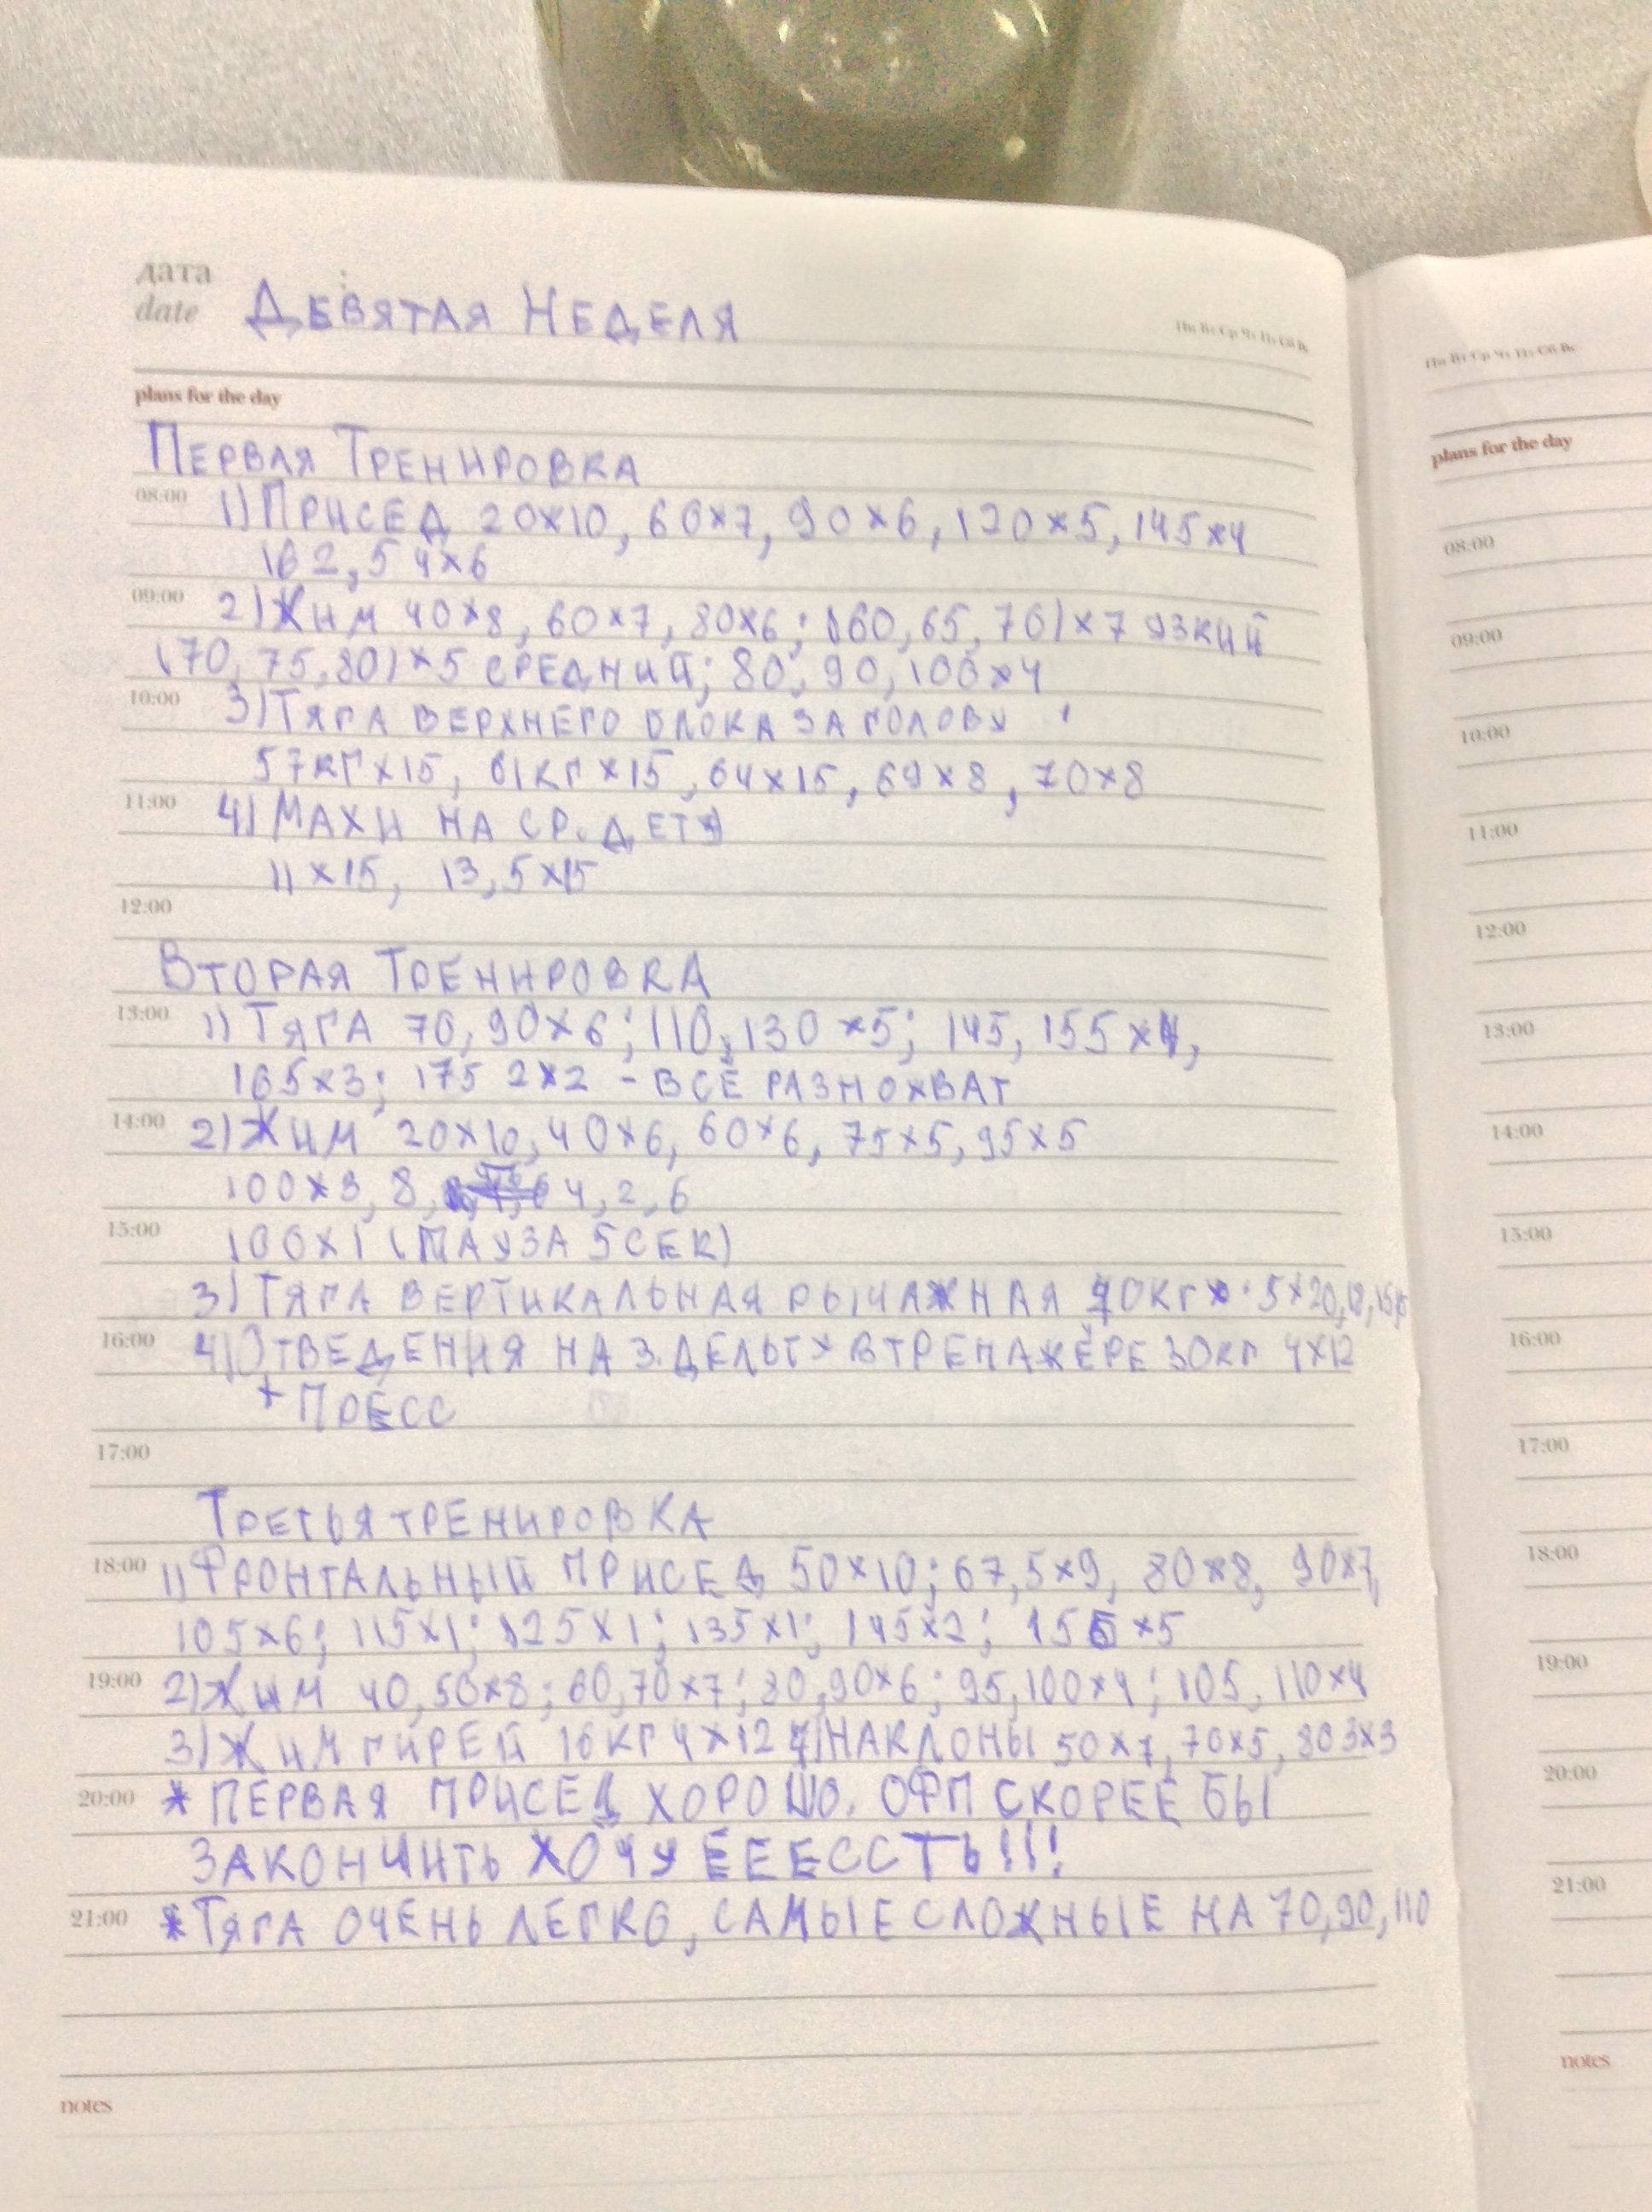 дата
date ДЕВЯТАЯ НЕДЕЛЯ
Пн Вт Ср Чт Пт Сб Вс
plans for the day
ПЕРВАЯ ТРЕНИРОВКА
08:00 1) ПРИСЕД 20×10, 60×7, 90×6, 120×5, 145×4
162,5 4×6
09:00 2) ЖИМ 40×8, 60×7, 80×6; (60, 65, 70)×7 УЗКИЙ
(70, 75, 80)×5 СРЕДНИЙ; 80, 90, 100×4
10:00 3) ТЯГА ВЕРХНЕГО БЛОКА ЗА ГОЛОВУ
57КГ×15, 61КГ×15, 64×15, 69×8, 70×8
11:00 4) МАХИ НА СР.
11×15, 13,5×15
12:00
ВТОРАЯ ТРЕНИРОВКА
13:00 1) ТЯГА 70, 90×6; 110, 130×5; 145, 155×4,
165×3; 175 2×2 - ВСЁ РАЗНОХВАТ
14:00 2) ЖИМ 20×10, 40×6, 60×6, 75×5, 95×5
100×3, 8, 4, 2, 6
15:00 100×1 (ПАУЗА 5 СЕК)
3) ТЯГА ВЕРТИКАЛЬНАЯ РЫЧАЖНАЯ
16:00 4) ОТВЕДЕНИЯ НА З. ДЕЛЬТУ В ТРЕНАЖЁРЕ 30КГ 4×12
+ ПРЕСС
17:00
ТРЕТЬЯ ТРЕНИРОВКА
18:00 1) ФРОНТАЛЬНЫЙ ПРИСЕД 50×10; 67,5×9, 80×8, 90×7,
105×6; 115×1; 125×1; 135×1; 145×2; 155×5
19:00 2) ЖИМ 40, 50×8; 60, 70×7; 80, 90×6; 95, 100×4; 105, 110×4
3) ЖИМ ГИРЕЙ 16КГ 4×12 4) НАКЛОНЫ 50×7, 70×5, 80 3×3
20:00 * ПЕРВАЯ ПРИСЕД ХОРОШО. ОФП СКОРЕЕ БЫ
ЗАКОНЧИТЬ ХОЧУ ЕЕЕССТЬ!!!
21:00 * ТЯГА ОЧЕНЬ ЛЕГКО, САМЫЕ СЛОЖНЫЕ НА 70, 90, 110
notes
Пн Вт Ср Чт Пт Сб Вс
plans for the day
08:00
09:00
10:00
11:00
12:00
13:00
14:00
15:00
16:00
17:00
18:00
19:00
20:00
21:00
notes